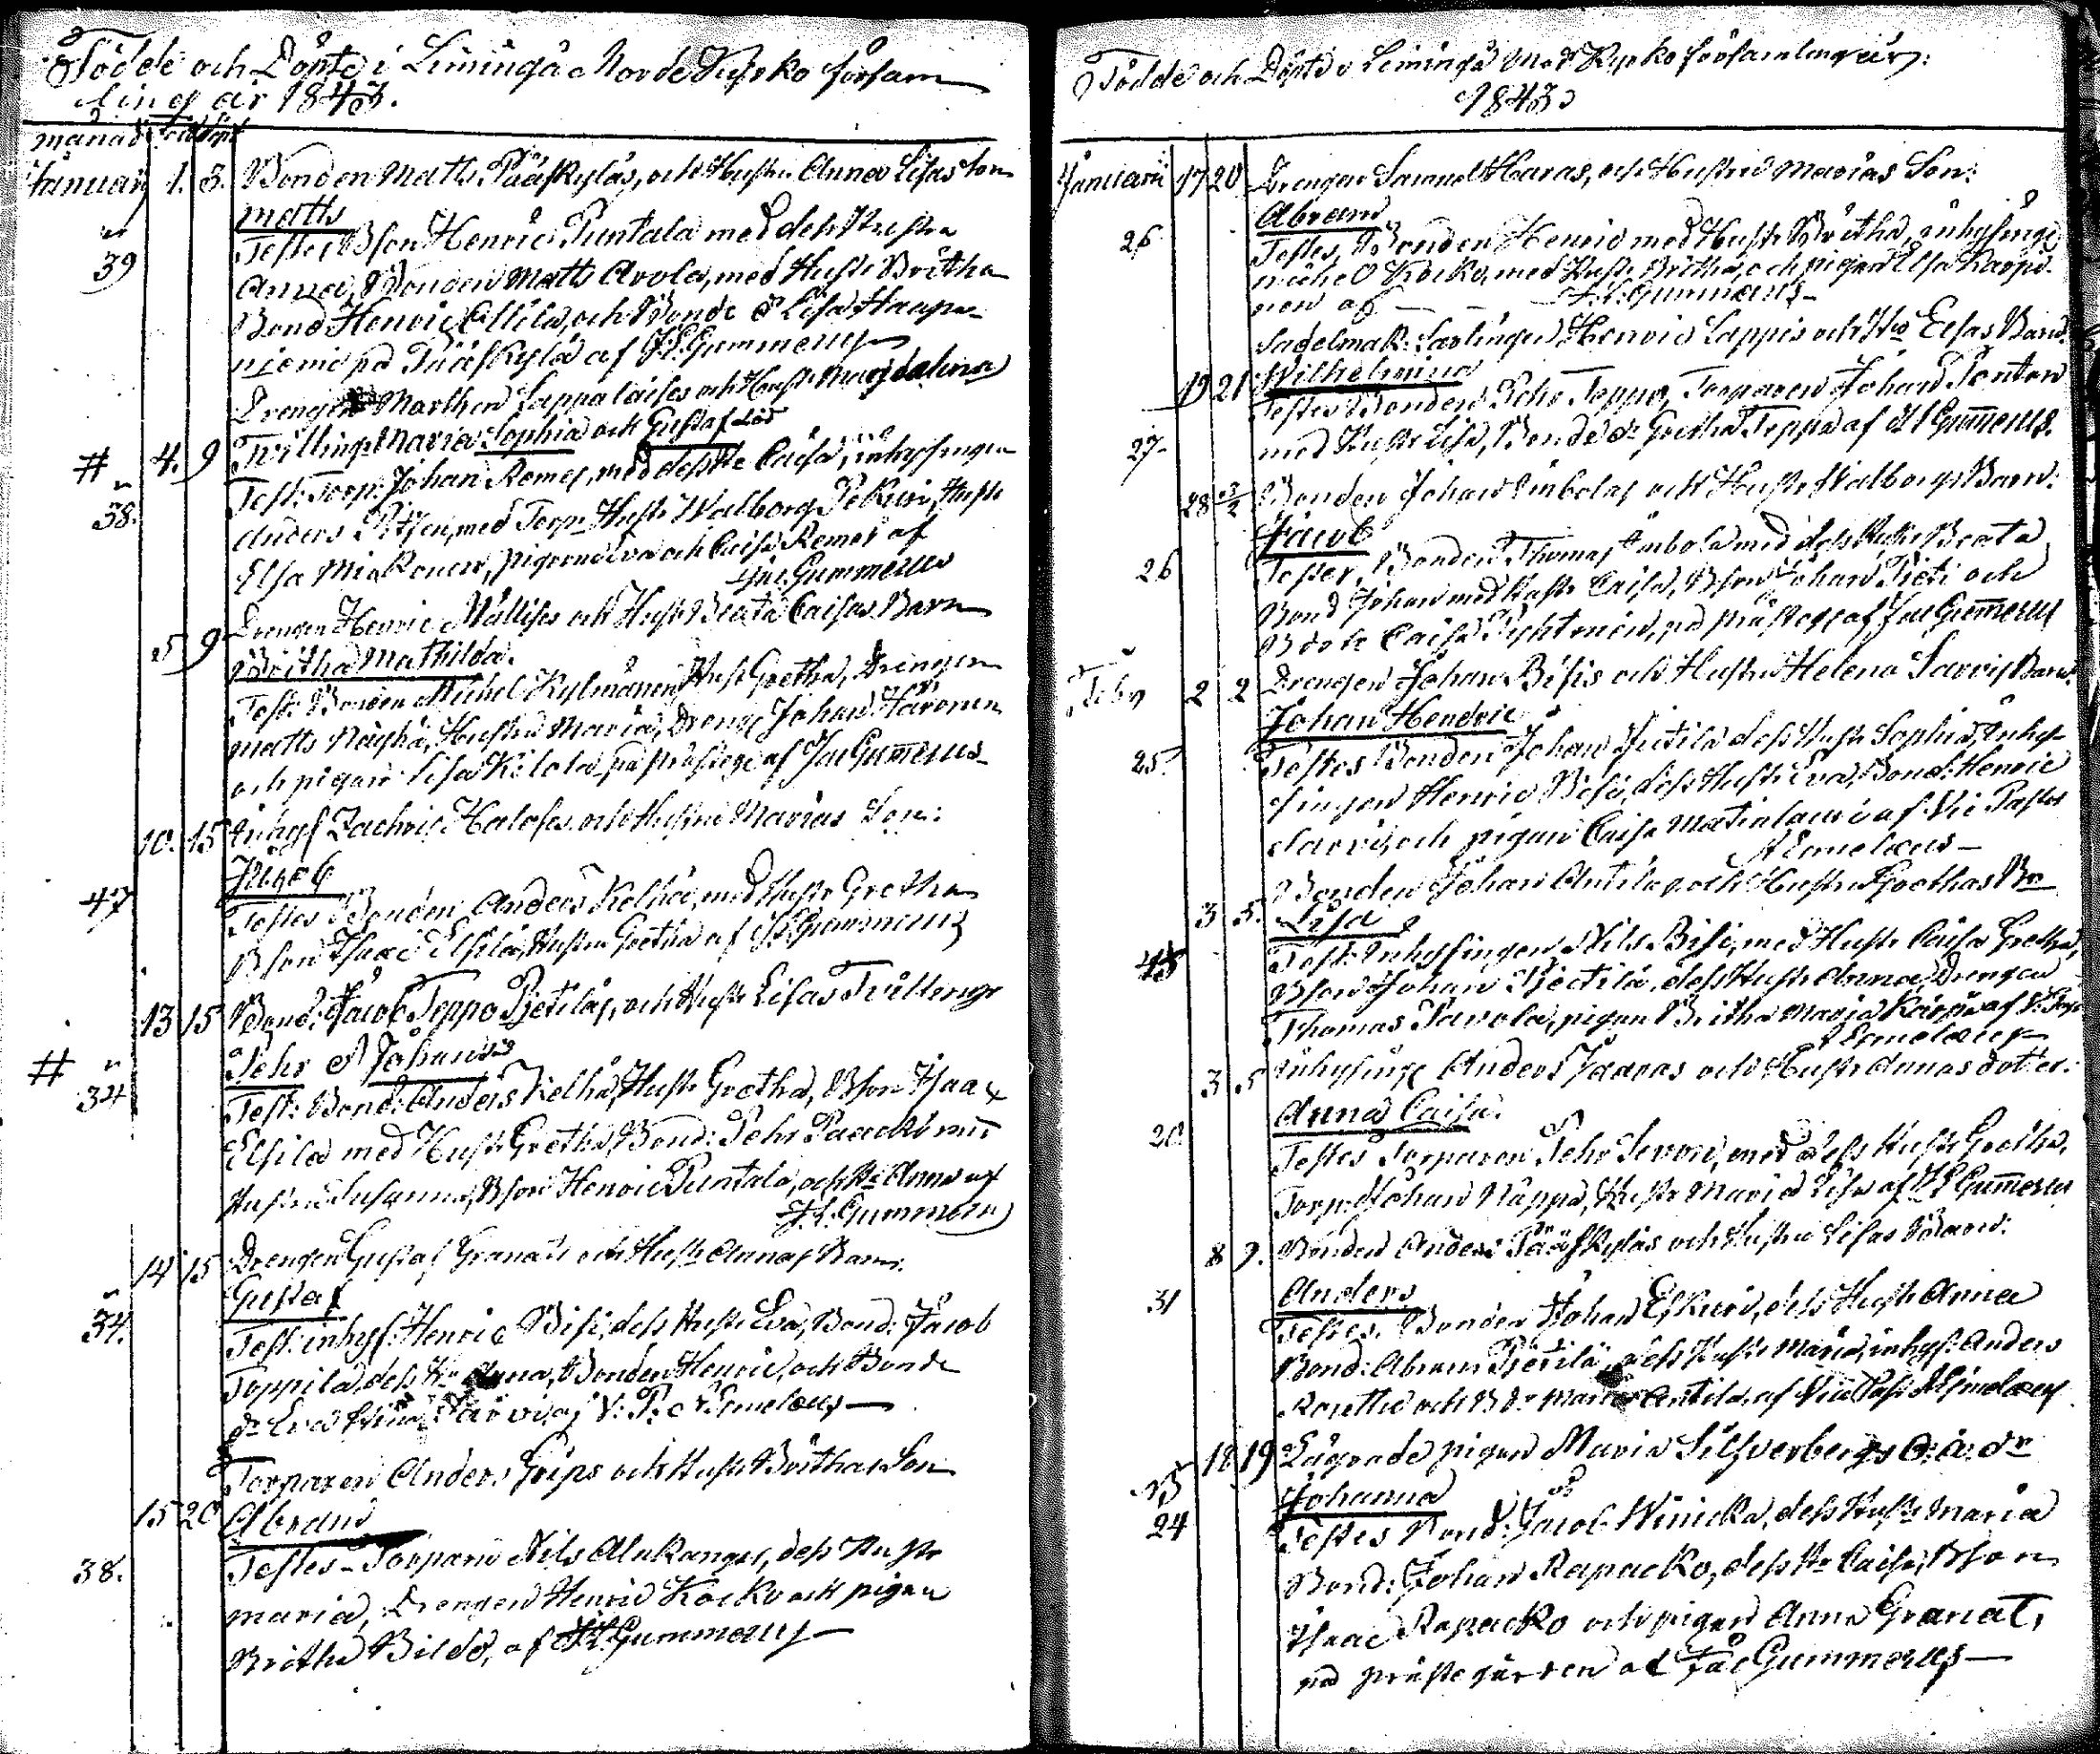 Födde och Döpte i Limingå Moder Kyrko försam
ling år 1843.
månad född döpt
Januarij 1. 3. Bonden Matts Pääskyläs, och Hustru Annas Lisas Son
Matts
Testes Bson Henric Puntala med dess Hustru
39
Anna, Bonden Matts Avola, med Hustr Britha
Bond Henric Ollila, och Bonde dr Lisa Haapa-
niemi på Pääskylä af J.L. Gummerus
Drengen Marthen Lappalaises och Hustr Magdalena
# 4. 9 Twillingr Maria Sophia och Gustaf
Test: Torp: Johan Remes, med dess Hu Caisa, inhysingen
38.
Anders med Torp Hustr Walborg Pekuri, Hustr
Elsa Miakonen, pigorna Eva och Caisa Remes af
Jac. Gummerus
5 9 Drengen Henric Mällises och Hustr Beata Caisas Barn
Britha Mathilda.
Test: Bonden Michel Kylmänen Hust Gretha, Drengen
Matts Hustru Maria, Dreng Johan Häronen
och pigan Lisa Kilola på prästege af Jac Gummerus
10. 15 Inhys Zachris Haloses och Hustru Marias Son:
Jacob
47
Testes Bonden Anders Kelhä, med Hustr Gretha
Bson Isaac Elsilä, Hustru Gretha af J.L. Gummerus
13 15 Bond: Jacob Teppo Pietiläs, och Hustr Lisas Twillingr
# Pehr & Johan
34
Test: Bond: Anders Kelhä, Hustr Gretha, Bson Isaac
Elsilä med Hustr Gretha, Bond: Pehr
Hustru Susanna, Bson Henric Puntala, och Hu Anna af
J.L. Gummerus
14 15 Drengen Gustaf Granats och Hustr Annas Barn.
Gustaf
34.
Test: inhys: Henric Bisi, dess Hustr Eva, Bond: Jacob
Toppila, dess Hu Anna, Bonden Henric, och Bonde
dr Eva Stina Sarvi, af V: P: A Emelæus
Torparen Anders Grips och Hustr Brithas Son
15 20 Abram
38.
Testes Torparen Nils Alakangas, dess Hustr
Maria, Drengen Henric Kocko och pigan
Britha Bildo, af J.L. Gummerus
Födde och Döpte i Limingå Modr Kyrko församling år:
1843
Januarii 17 20 Drengen Samuel Haras, och Hustru Marias Son:
Abram
26
Testes, Bonden Henric med Hustr Britha, inhysinge
Michel Kocko, med Hustr Britha, och pigan Elsa Karpi-
nen af J.L. Gummerus
Sadelmak: Lärlingen Henric Lappis och Hu Elsas Barn:
19 21 Wilhelmina
Testes Bonden Pehr Teppo, Torparen Johan Ponton
27
med Hustr Lisa, Bonde dr Gretha Teppo af J L Gummerus.
28 3/2 Bonden Johan Imbolas och Hustr Walborgs Barn:
Jacob
26
Testes, Bonden Thomas Imbola med dess Hustr Beata
Bond Johan med Hustr Caisa, Bson Johan Pieti och
Bdotr Caisa på prästege af Jac Gummerus
Febr 2 2 Drengen Johan Bisis och Hustru Helena Sarvis Barn:
Johan Hendric
25.
Testes Bonden Johan Jutila dess Hustr Sophia, Inhy-
singen Henric Bisi, dess Hustr Eva, Bond: Henric
Sarvi, och pigan Caisa Matinlauri af Vic Pastor
A Emelæus
Bonden Johan Antilas och Hustru Grethas Bn
3 5. Lisa
45
Test: Inhysingen Nils Bisi, med Hustr Caisa Gretha,
Bson Johan Pietilä, dess Hustr Anna, Drengen
Thomas Pavola, pigan Britha Maja Karpi af V: Past
A Emelæus
3 5 Inhysinge Anders Jaaras och Hustr Annas dotter:
Anna Caisa.
20
Testes Torparen Pehr Servi, med dess Hustr Gretha,
Torp: Johan Näppä, Hustr Maria Lisa af J L Gummerus
8 9. Bonden Anders Pääskyläs och Hustru Lisas Barn:
Anders
31
Testes: Bonden Johan Eskuri, dess Hustr Anna
Bond: Abram Pietilä, dess Hustr Maria, inhys: Anders
och B dr Maria Antila, af Vic Past A Emelæus
18 19 Lägrade pigan Maria Silfverbergs o: ä: dr
Johanna
25
24
Testes Bond: Jacob Winicka, dess Hustr Maria
Bond: Johan Rapacko, dess Hr Caisa, Bson
Isaac Rapacko och pigan Anna Granat,
på prästegården af Jac Gummerus